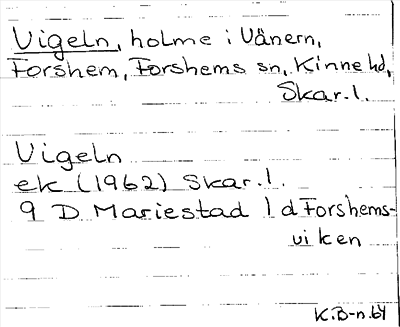 Vigeln, holme i Vänern,
Forshem, Forshems sn, Kinne hd,
Skar. l.
Vigeln
ek (1962) Skar. l.
9 D Mariestad 1 d Forshems-
viken
K.B-n.